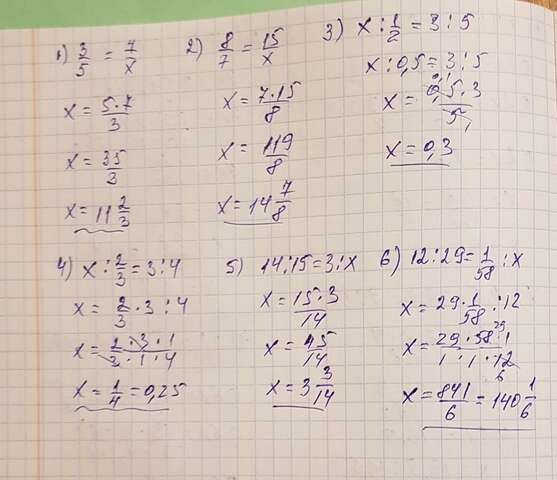 1) 3/5 = 7/x
x = 5·7/3
x = 35/3
x = 11 2/3
2) 8/7 = 15/x
x = 7·15/8
x = 119/8
x = 14 7/8
3) x : 1/2 = 3 : 5
x : 0,5 = 3 : 5
x = 0,5·3/5
x = 0,3
4) x : 2/3 = 3 : 4
x = 2/3 · 3 : 4
x = 2·3·1/3·1·4
x = 1/4 = 0,25
5) 14:15 = 3:x
x = 15·3/14
x = 45/14
x = 3 3/14
6) 12:29 = 1/58 : x
x = 29·1/58 : 12
x = 29·58·1/1·1·12
x = 841/6 = 140 1/6